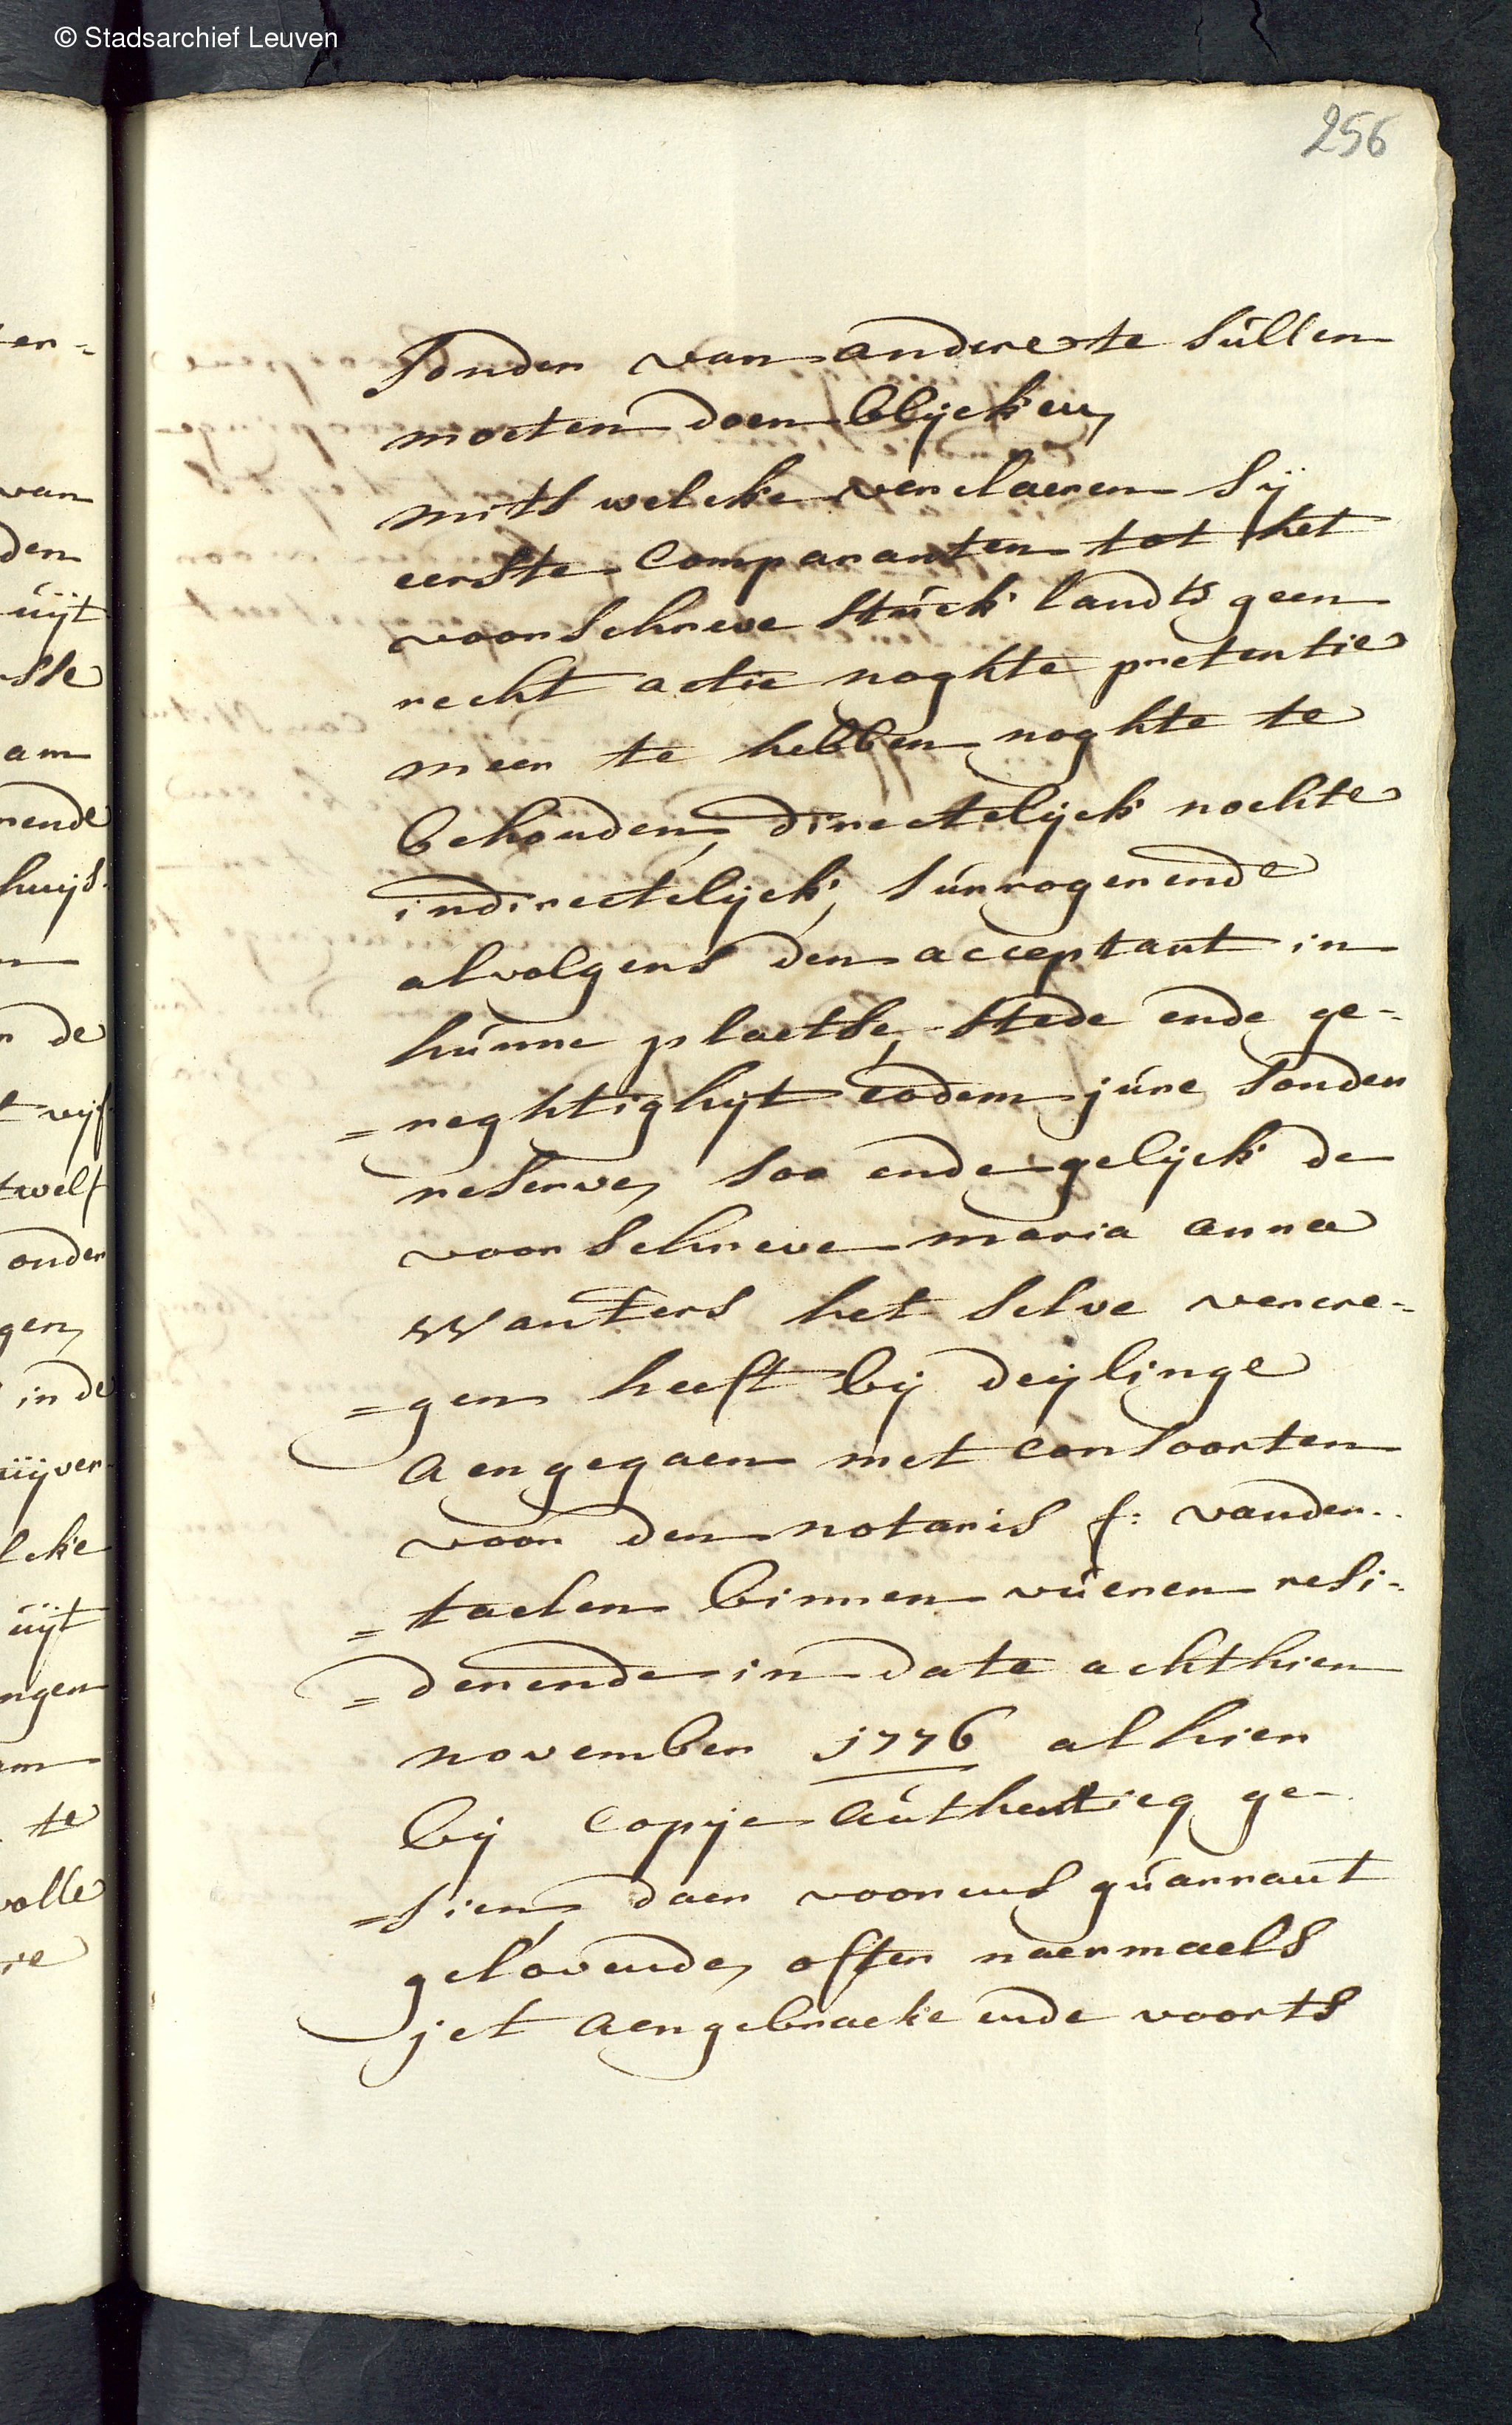 © Stadsarchief Leuven
256
sonder van andere te sullen
moeten doen blijcken,
mits welcke verclaeren sij
eerste comparanten tot het
voorschreve stuck landts geen
recht actie noghte pretentie
meer te hebben noghte te
behouden, directelijck nochte
indirectelijck, surrogerende
alvolgens den acceptant in
hunne plaetse, stede ende ge-
=reghtighijt eodem jure sonder
reserve, soo ende gelijck de
voorschreve maria anna
Wauters het selve vercre-
=gen heeft bij deijlinge
aengegaen met consoorten
voor den notaris f: vander..
=taelen binnen vueren resi-
=derende in date achthien
november 1776 alhier
bij copije authenticq ge-
=sien, daer vooren quarrant
gelovende, offer naermaels
jet aengebracke ende voorts
er-
van
den
uijt
sse
am
rende
huijs
n de
t vijf
twelf
onder
gen,
in de
uijver
lcke
uijt
ngen
te
volle
re